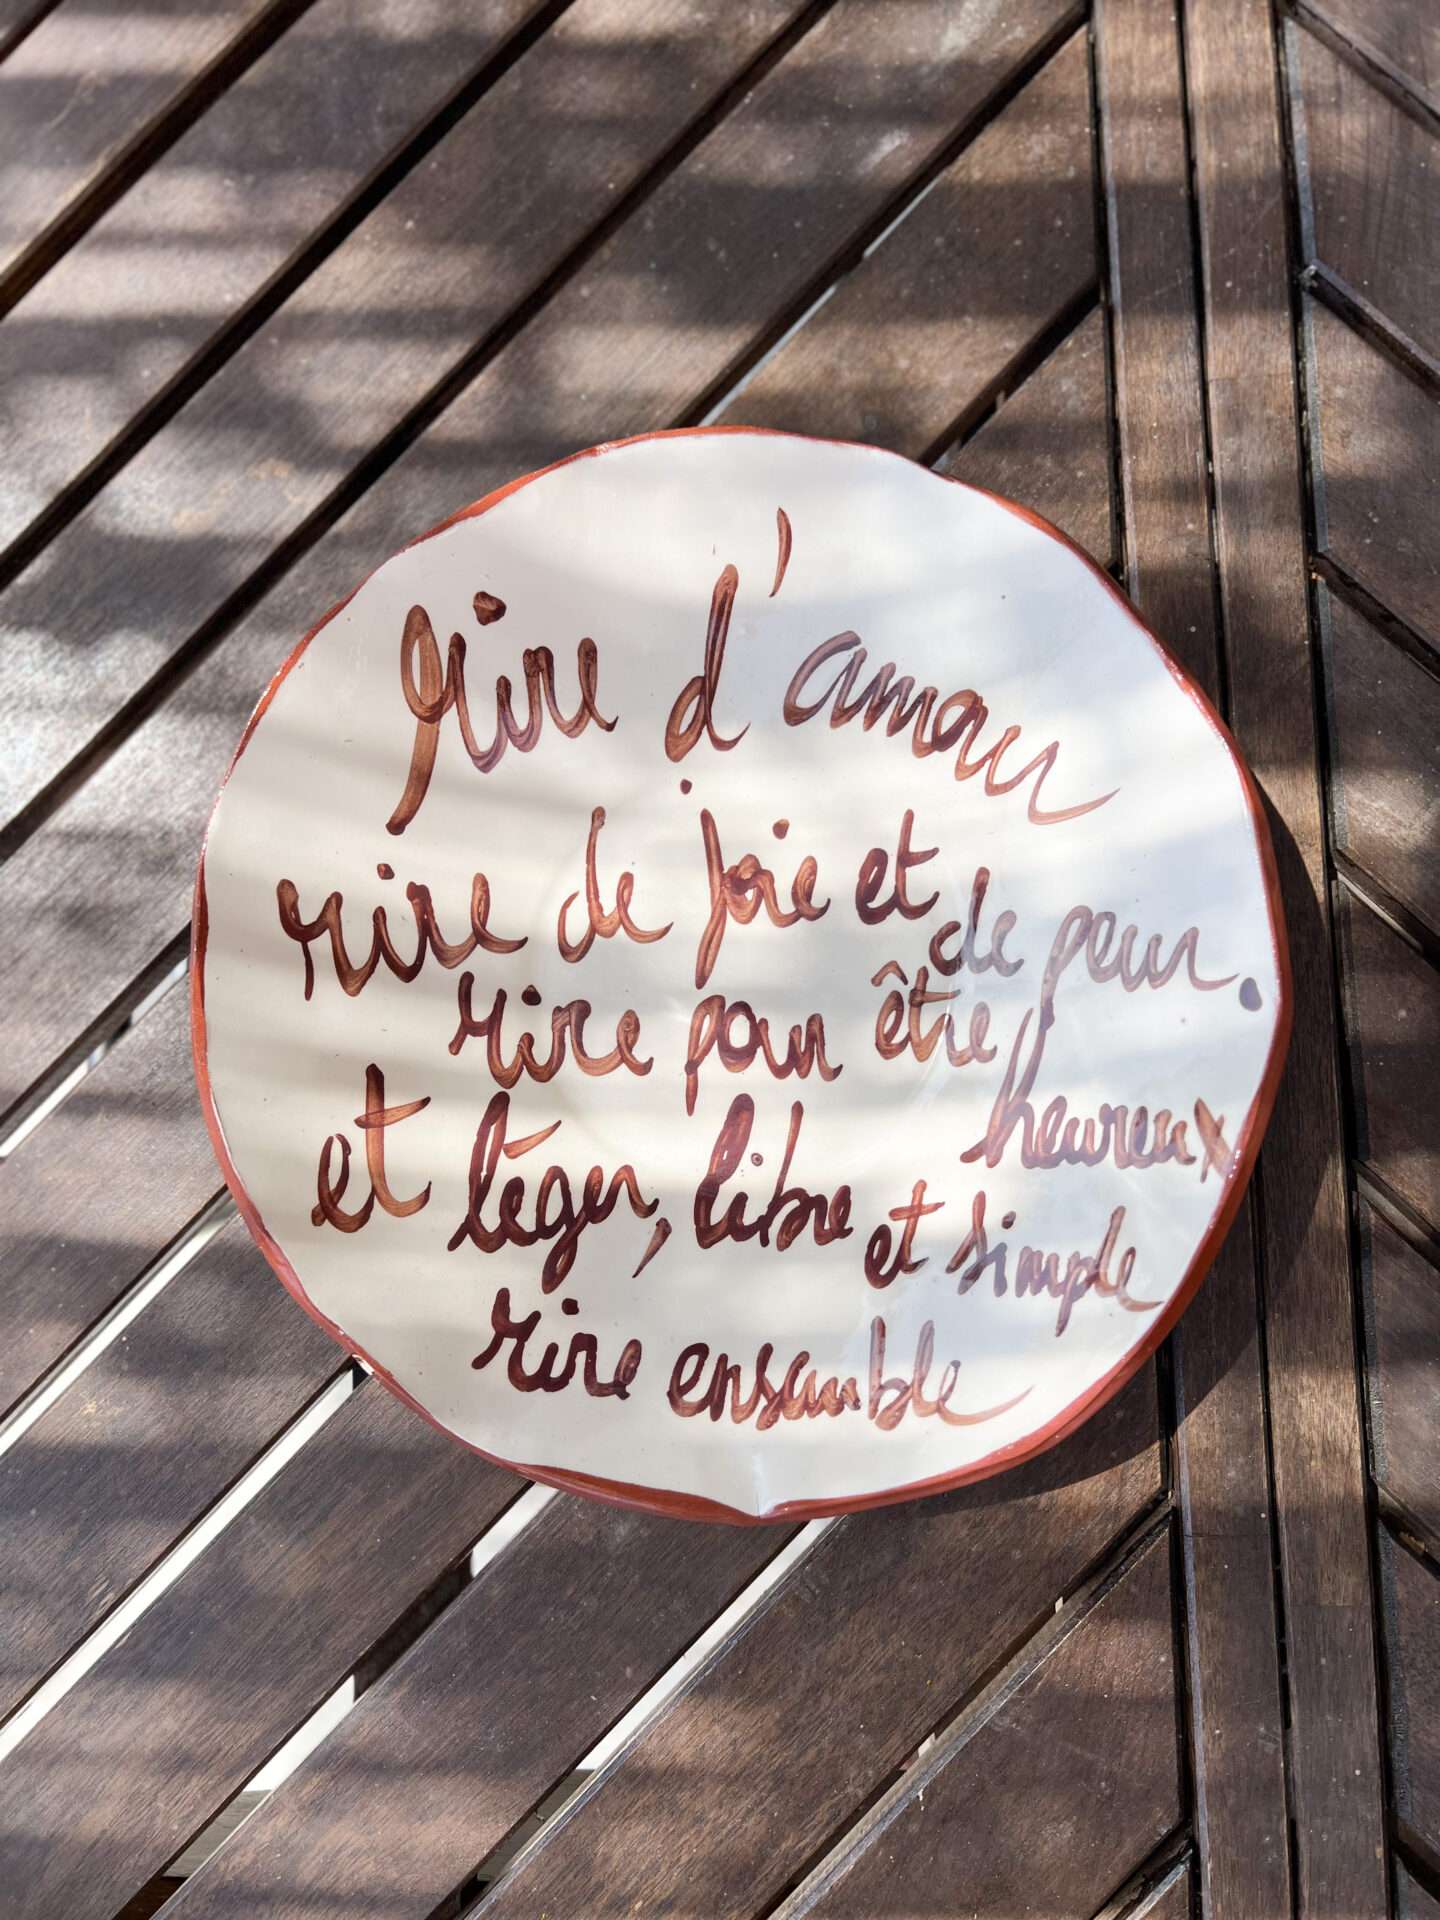 Rire d'amour
rire de joie et de peur.
rire pour être heureux
et léger, libre et simple
rire ensemble